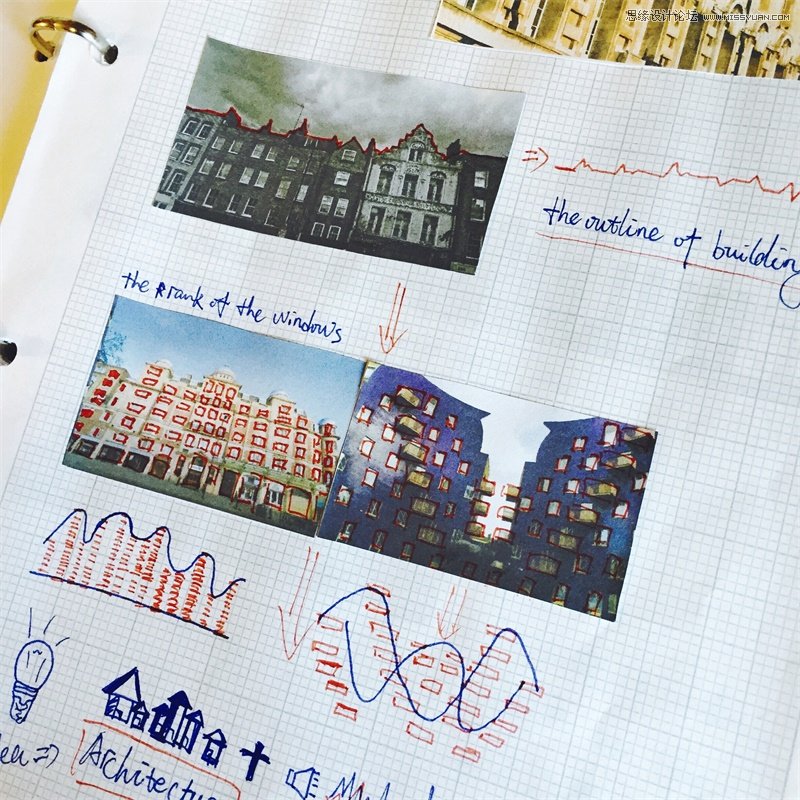 思缘设计论坛 WWW.MISSYUAN.COM
the outline of building
the Rrank of the windows
Architectu